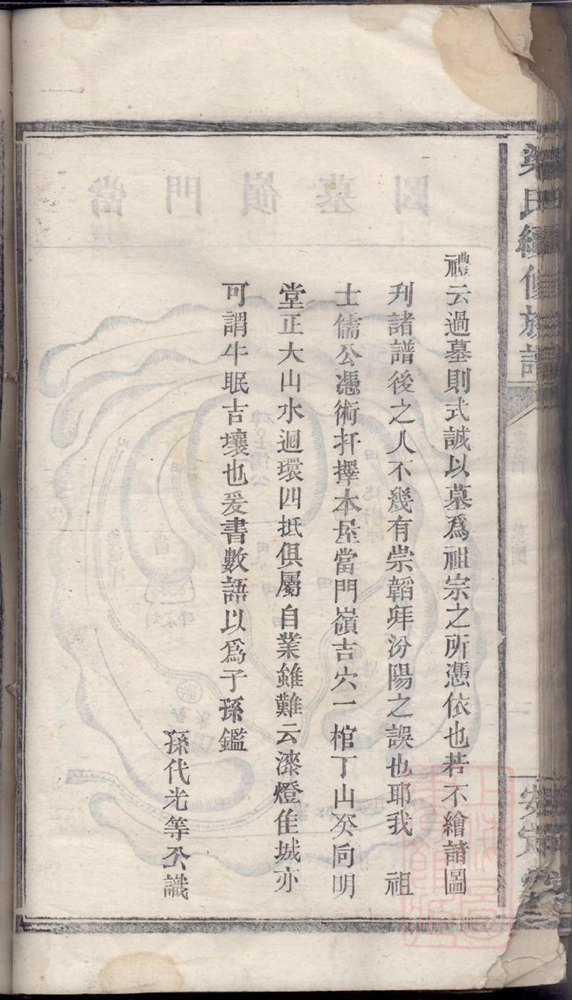 梁氏續修族譜
禮云過墓則式誠以墓爲祖宗之所憑依也若不繪諸圖
刋諸譜後之人不幾有崇韜拜汾陽之誤也耶我 祖
士儒公憑術扦擇本屋當門嶺吉穴一棺丁山癸向明
堂正大山水迴環四抵俱屬自業雖難云漆燈佳城亦
可謂牛眠吉壤也爰書數語以爲子孫鑑
孫代光等仝識
當門嶺墓圖